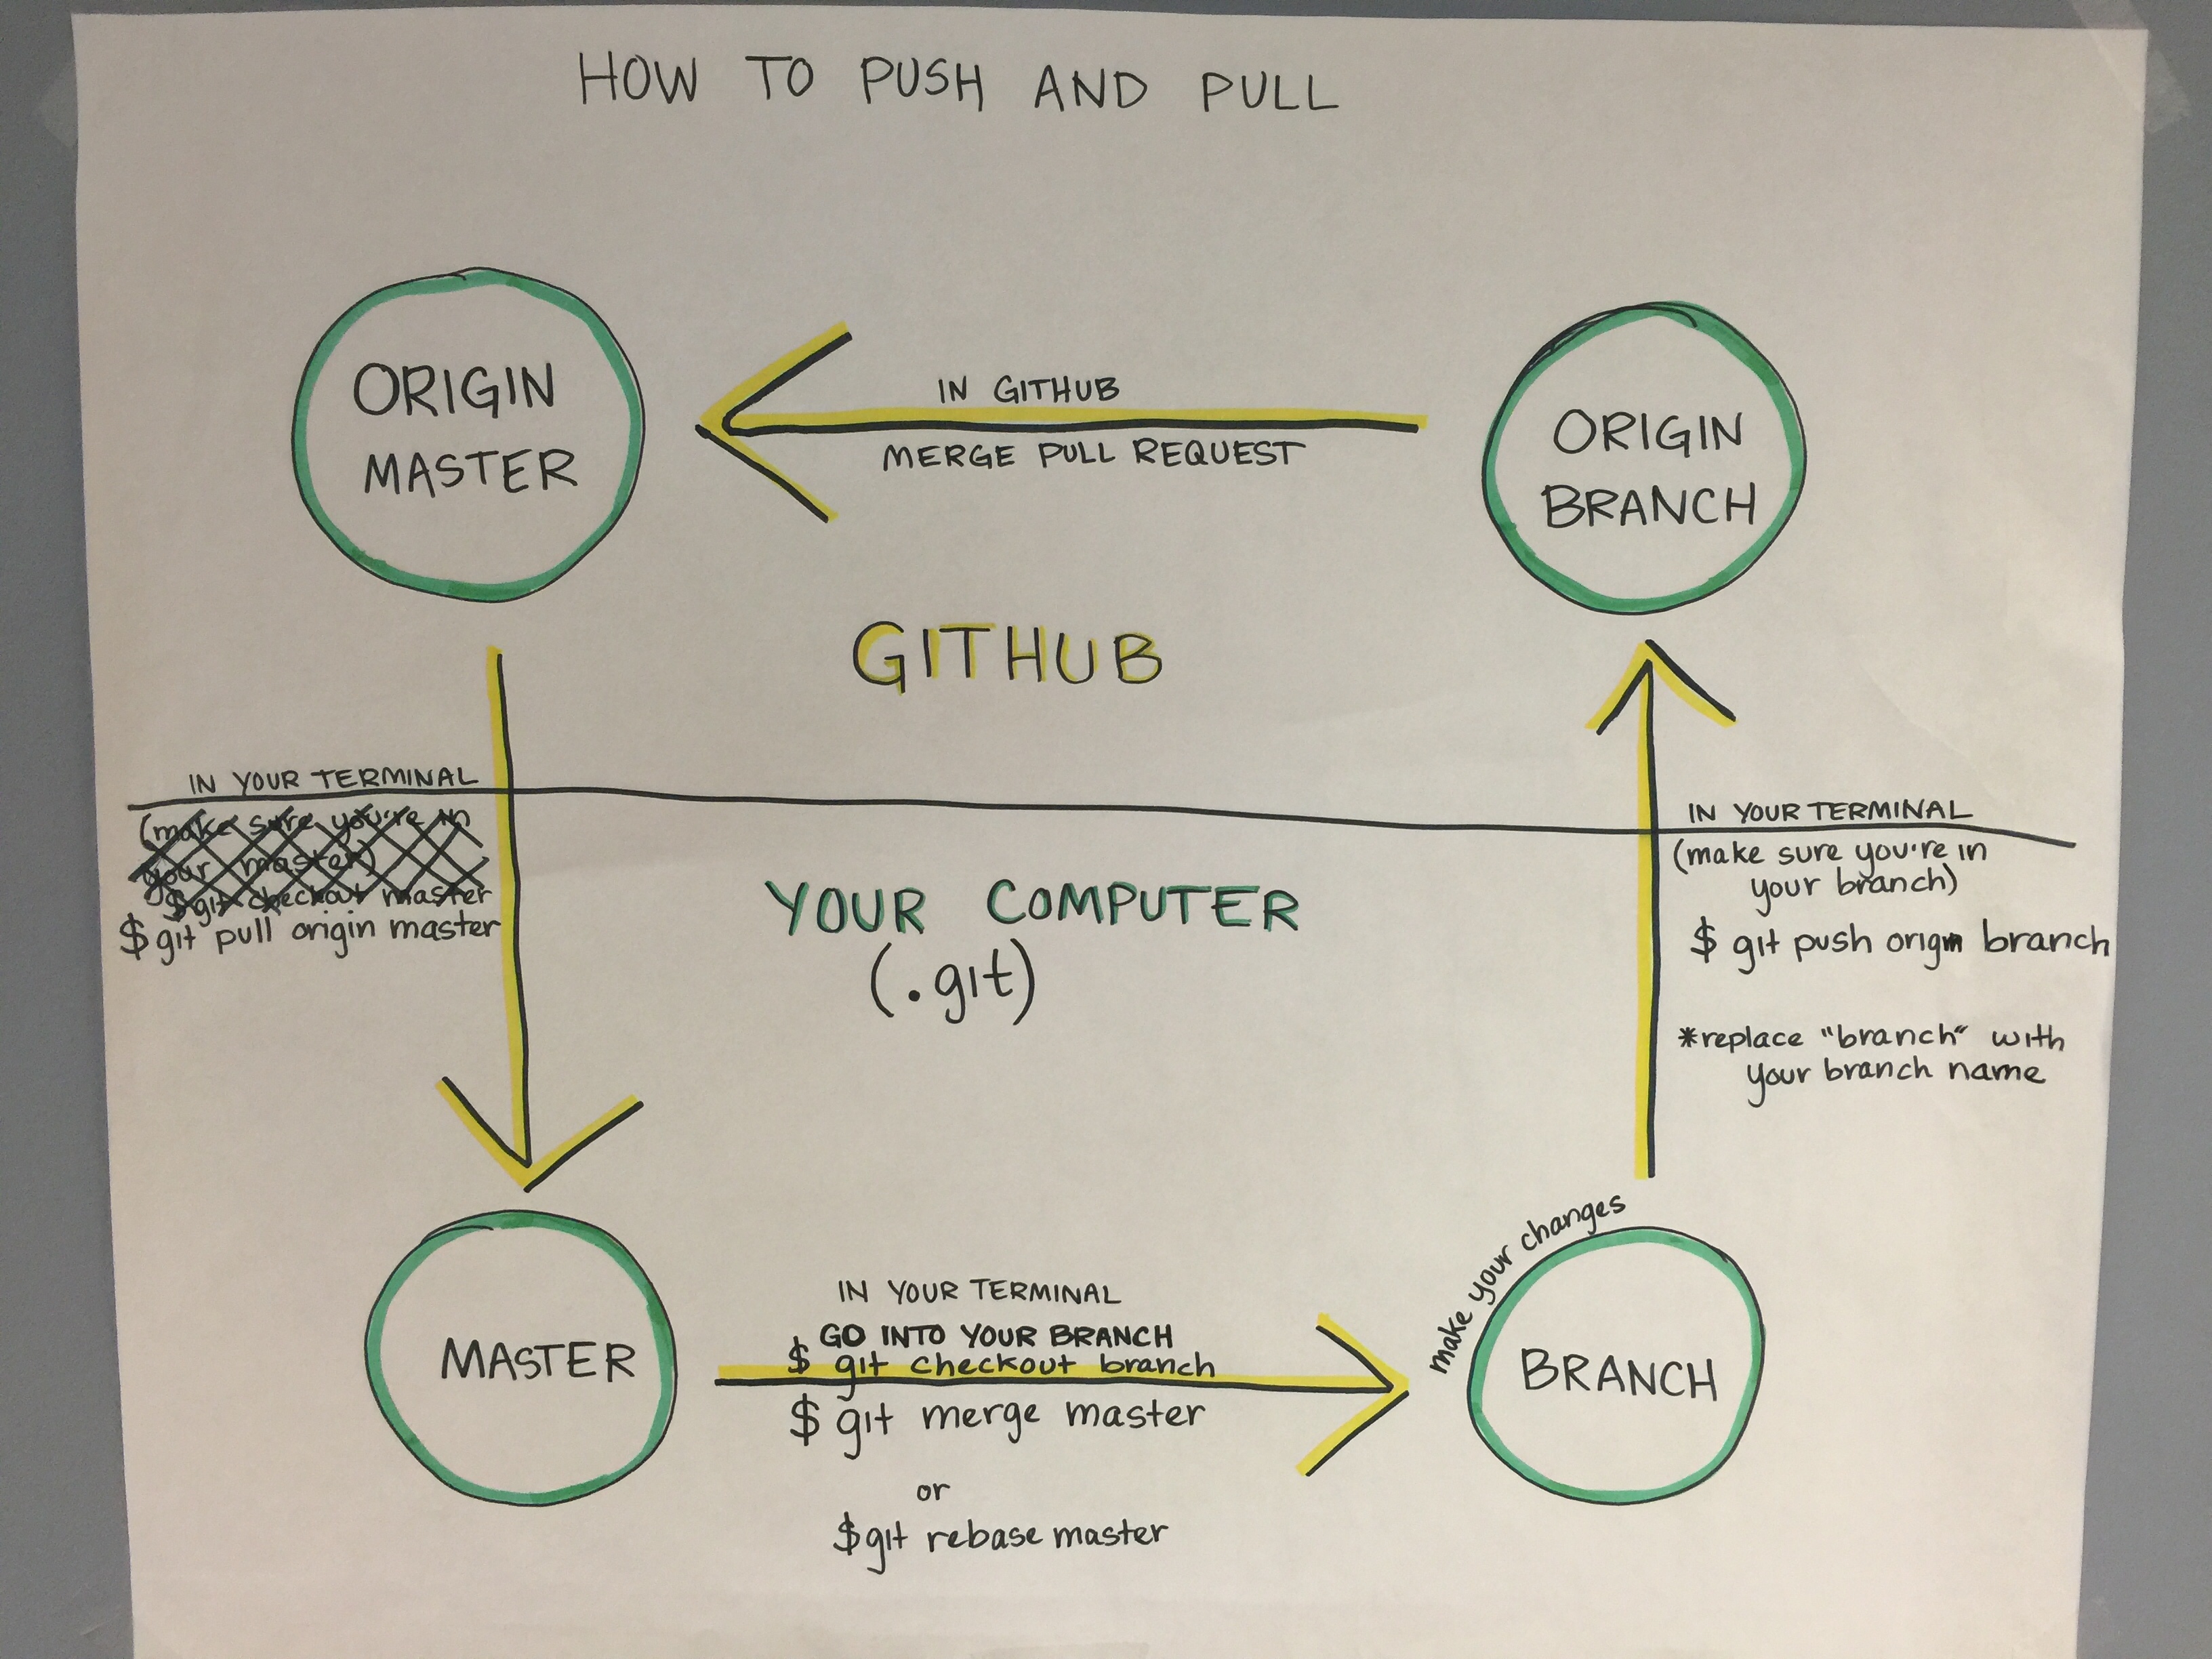 HOW TO PUSH AND PULL
ORIGIN
MASTER
IN GITHUB
MERGE PULL REQUEST
ORIGIN
BRANCH
GITHUB
IN YOUR TERMINAL
(make sure you're in
your master)
$ git checkout master
$ git pull origin master
IN YOUR TERMINAL
(make sure you're in
your branch)
$ git push origin branch
*replace "branch" with
your branch name
YOUR COMPUTER
(.git)
MASTER
IN YOUR TERMINAL
GO INTO YOUR BRANCH
$ git checkout branch
$ git merge master
or
$ git rebase master
make your changes
BRANCH